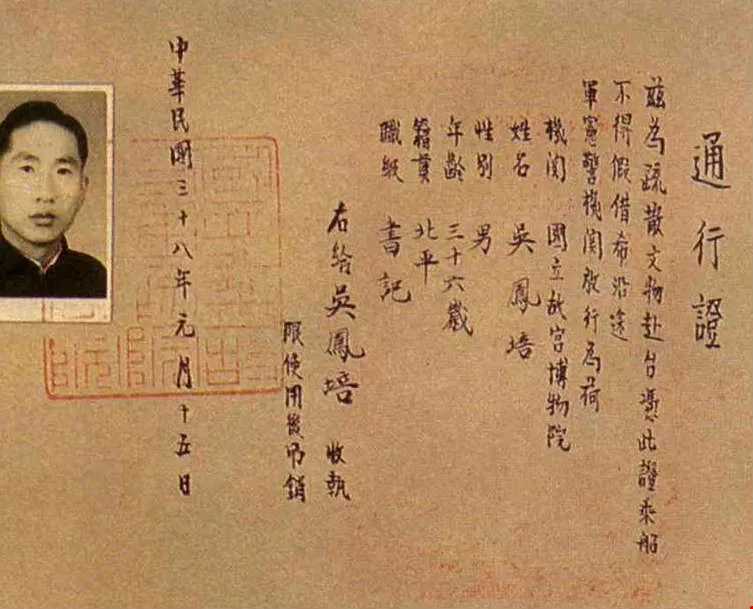 通行證
茲為疏散文物赴台憑此證乘船
不得假借希沿途
軍憲警機関放行為荷
機関 國立故宮博物院
姓名 吳鳳培
性別 男
年齡 三十六歲
籍貫 北平
職級 書記
右給吳鳳培 收執
限使用後吊銷
中華民國三十八年元月十五日